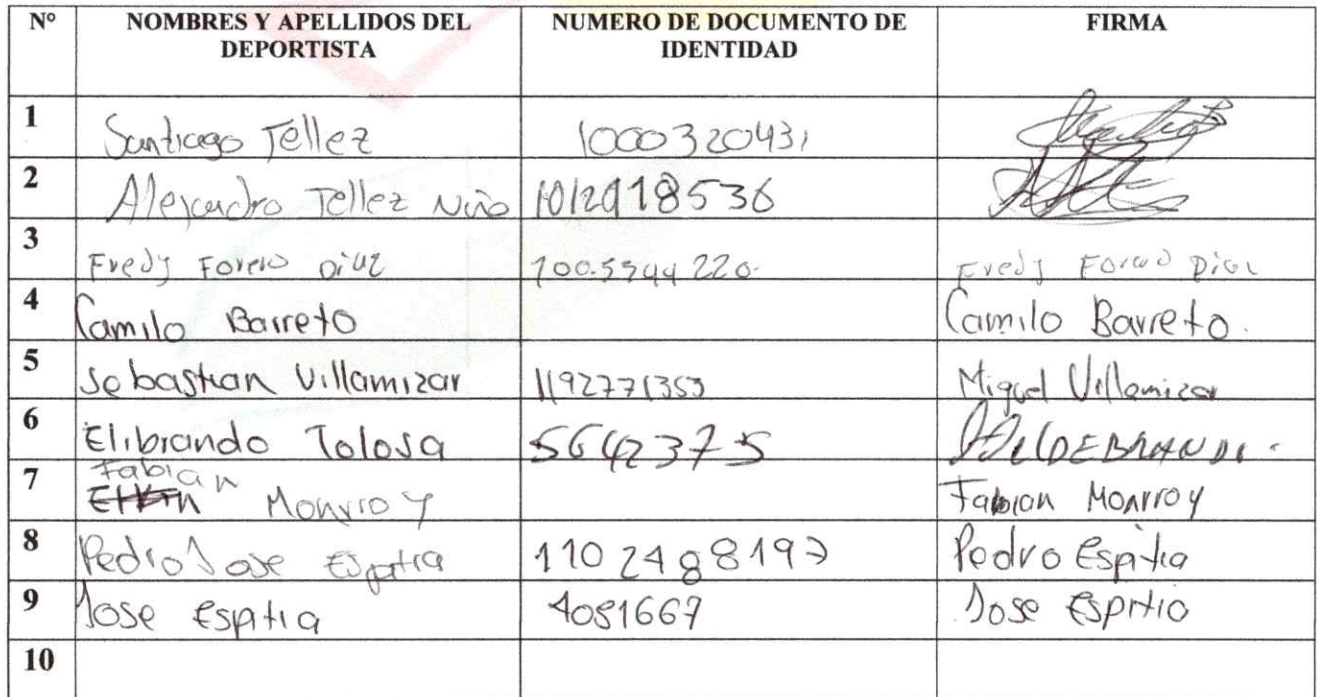 N° NOMBRES Y APELLIDOS DEL DEPORTISTA NUMERO DE DOCUMENTO DE IDENTIDAD FIRMA
1 Santiago Tellez 1000320431
2 Alejandro Tellez Niño 1012918536
3 Fredy Forero Diaz 100.5544220. Fredy Forero Diaz
4 Camilo Barreto Camilo Barreto.
5 Sebastian Villamizar 1192771353 Miguel Villamizar
6 Elibrando Tolosa 5642375 HILDEBRANDO
7 Fabian Monrroy Fabian Monrroy
8 Pedro Jose Espitia 1102488197 Pedro Espitia
9 Jose Espitia 4081667 Jose Espitia
10